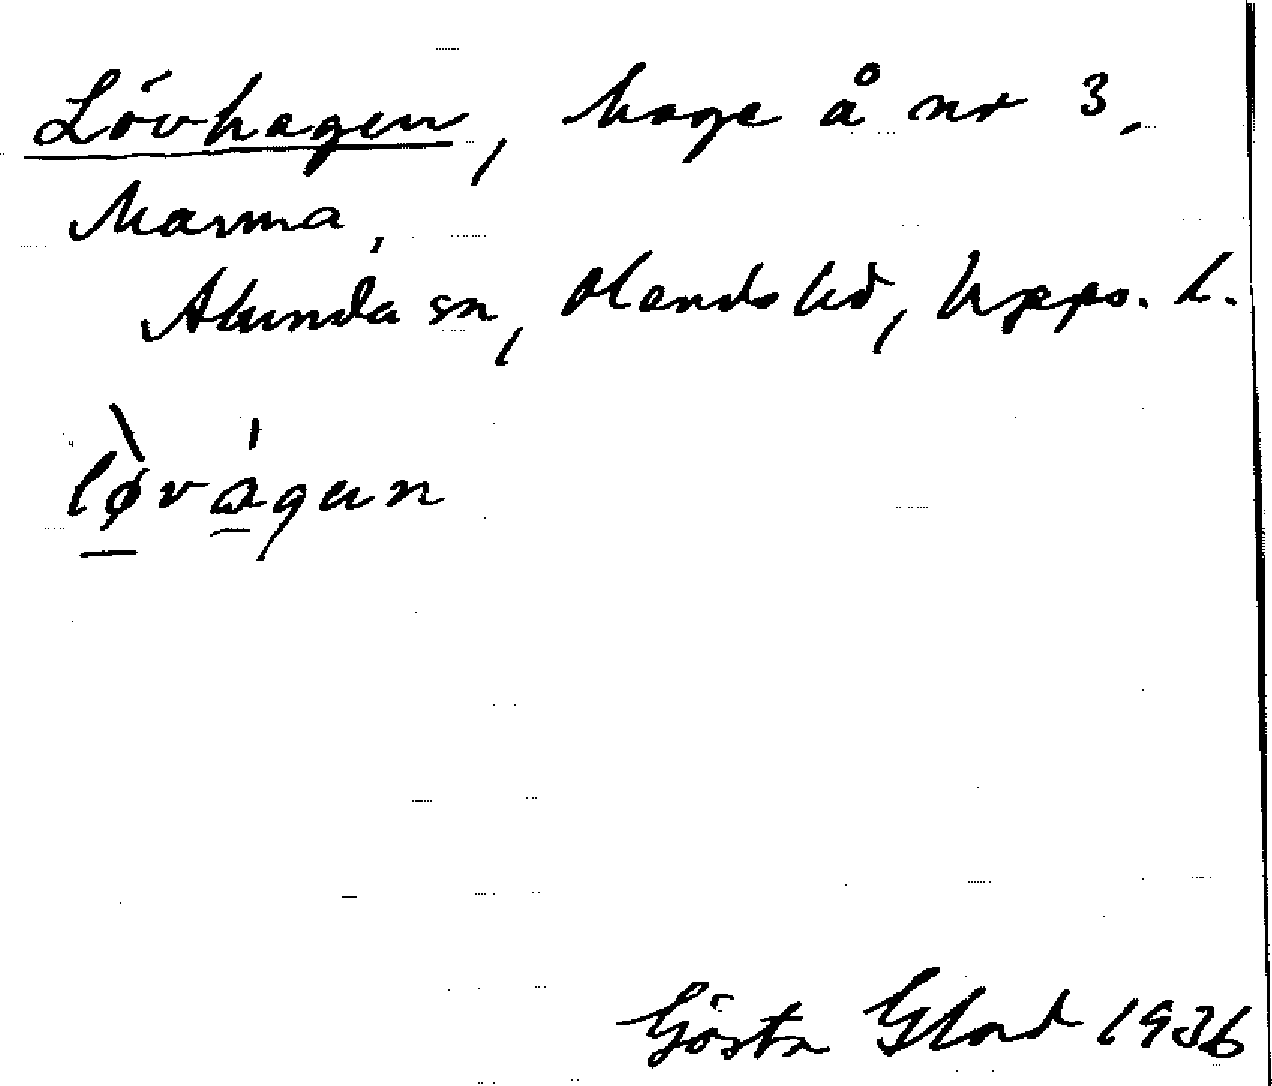 Lövhagen, hage å nr 3,
Marma,
Alunda sn, Olands hd, Upps. l.
lø̀vágan
Gösta Glad 1936